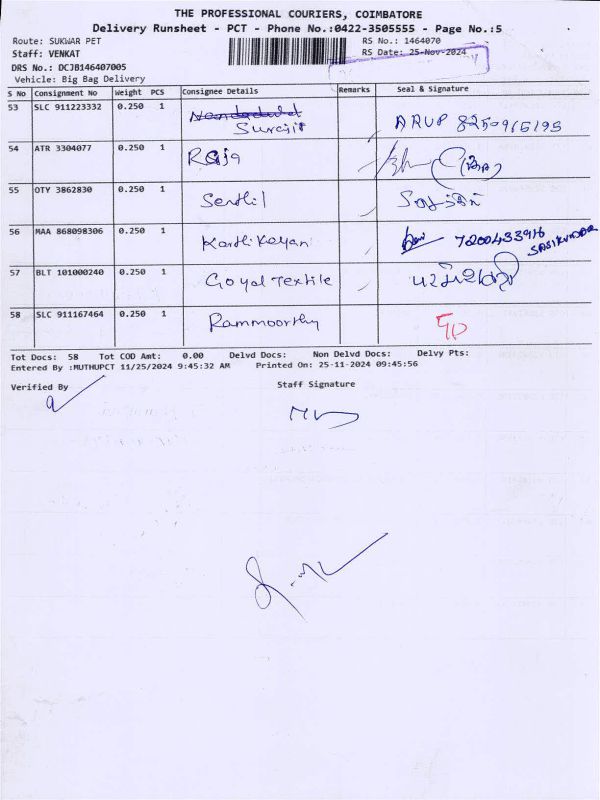 THE PROFESSIONAL COURIERS, COIMBATORE
Delivery Runsheet - PCT - Phone No.:0422-3505555 - Page No.:5
Route: SUKWAR PET RS No.: 1464070
Staff: VENKAT RS Date: 25-Nov-2024
DRS No.: DCJB146407005
Vehicle: Big Bag Delivery
S No Consignment No Weight PCS Consignee Details Remarks Seal & Signature
53 SLC 911223332 0.250 1 Surajit ARUP 8250965195
54 ATR 3304077 0.250 1 Raja
55 OTY 3862830 0.250 1 Senthil
56 MAA 868098306 0.250 1 Karthikeyan 7200433916
SASIKUMAR
57 BLT 101000240 0.250 1 Goyal Textile
58 SLC 911167464 0.250 1 Rammoorthy
Tot Docs: 58 Tot COD Amt: 0.00 Delvd Docs: Non Delvd Docs: Delvy Pts:
Entered By :MUTHUPCT 11/25/2024 9:45:32 AM Printed On: 25-11-2024 09:45:56
Verified By Staff Signature